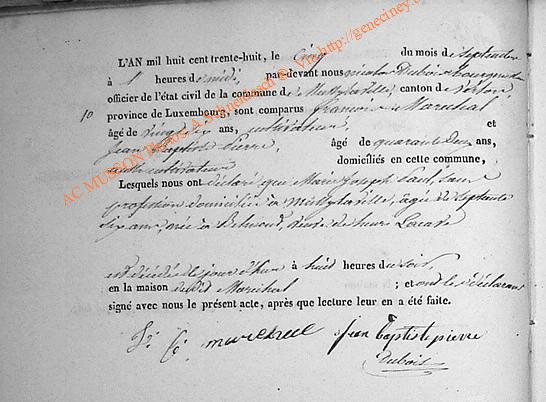 L'AN mil huit cent trente-huit, le cinq du mois de Septembre
à heures de midi, par-devant nous Nicolas Dubois bourgmestre
officier de l'état civil de la commune de Mussy-la-ville, canton de Virton,
10 province de Luxembourg, sont comparus françois Maréchal
âgé de vingt ans, cultivateur, et
Jean Baptiste Pierre, âgé de quarante deux ans,
cultivateur domiciliés en cette commune,
Lesquels nous ont déclaré que Marie Joseph sans
profession domiciliée à Mussy la ville, agée de septante
six ans, née à veuve de
est décédée le jour d'hier à huit heures du soir,
en la maison dudit Maréchal ; et ont les déclarants
signé avec nous le présent acte, après que lecture leur en a été faite.
marechal jean baptiste pierre
Dubois
AC MUSSON Photos A. Schneidesch © Via http://geneciney.b